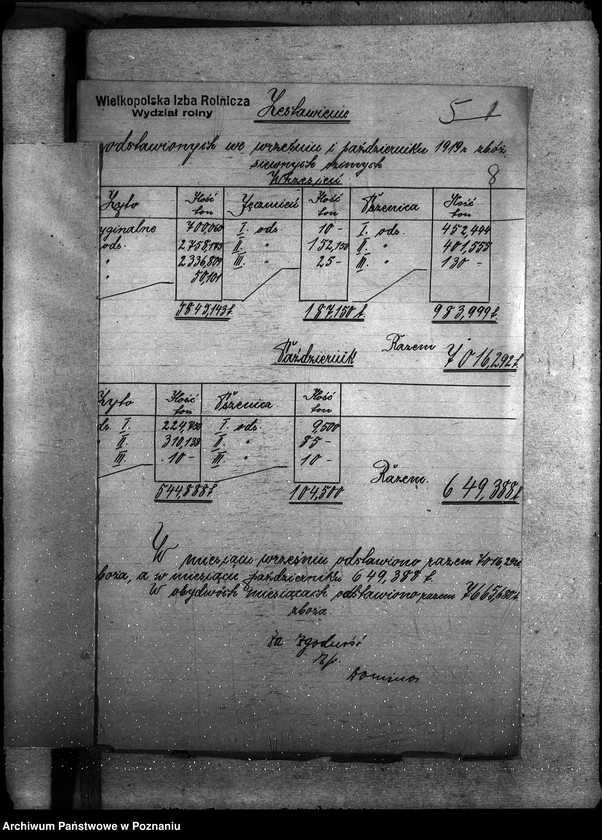 Wielkopolska Izba Rolnicza
Wydział rolny
Zestawienie
5 1
odstawionych we wrześniu i październiku 1919 r zbóż
siewnych ozimych
8
Wrzesień
Żyto Ilość ton Jęczmień Ilość ton Pszenica Ilość ton
yginalne 700,060 I. ods. 10 - I. ods. 452,444
ods. II. " 152,150 II. " 401555
" 2336,804 III. " 25 - III. " 130 -
" 50,101
3843,143 t. 187,150 t. 983,999 t.
Październik Razem 7016,292 t.
Żyto Ilość ton Pszenica Ilość ton
ds. I. 224,750 I. ods. 9,500
" II 310,138 II. " 85 -
" III. 10 - III. " 10 -
544,888 t. 104,500 Razem. 649,388 t
W miesiącu wrześniu odstawiono razem 7016,292
boża, a w miesiącu październiku 649,388 t.
W obydwóch miesiącach odstawiono razem 7665,680 t.
zboża
za zgodność
Archiwum Państwowe w Poznaniu